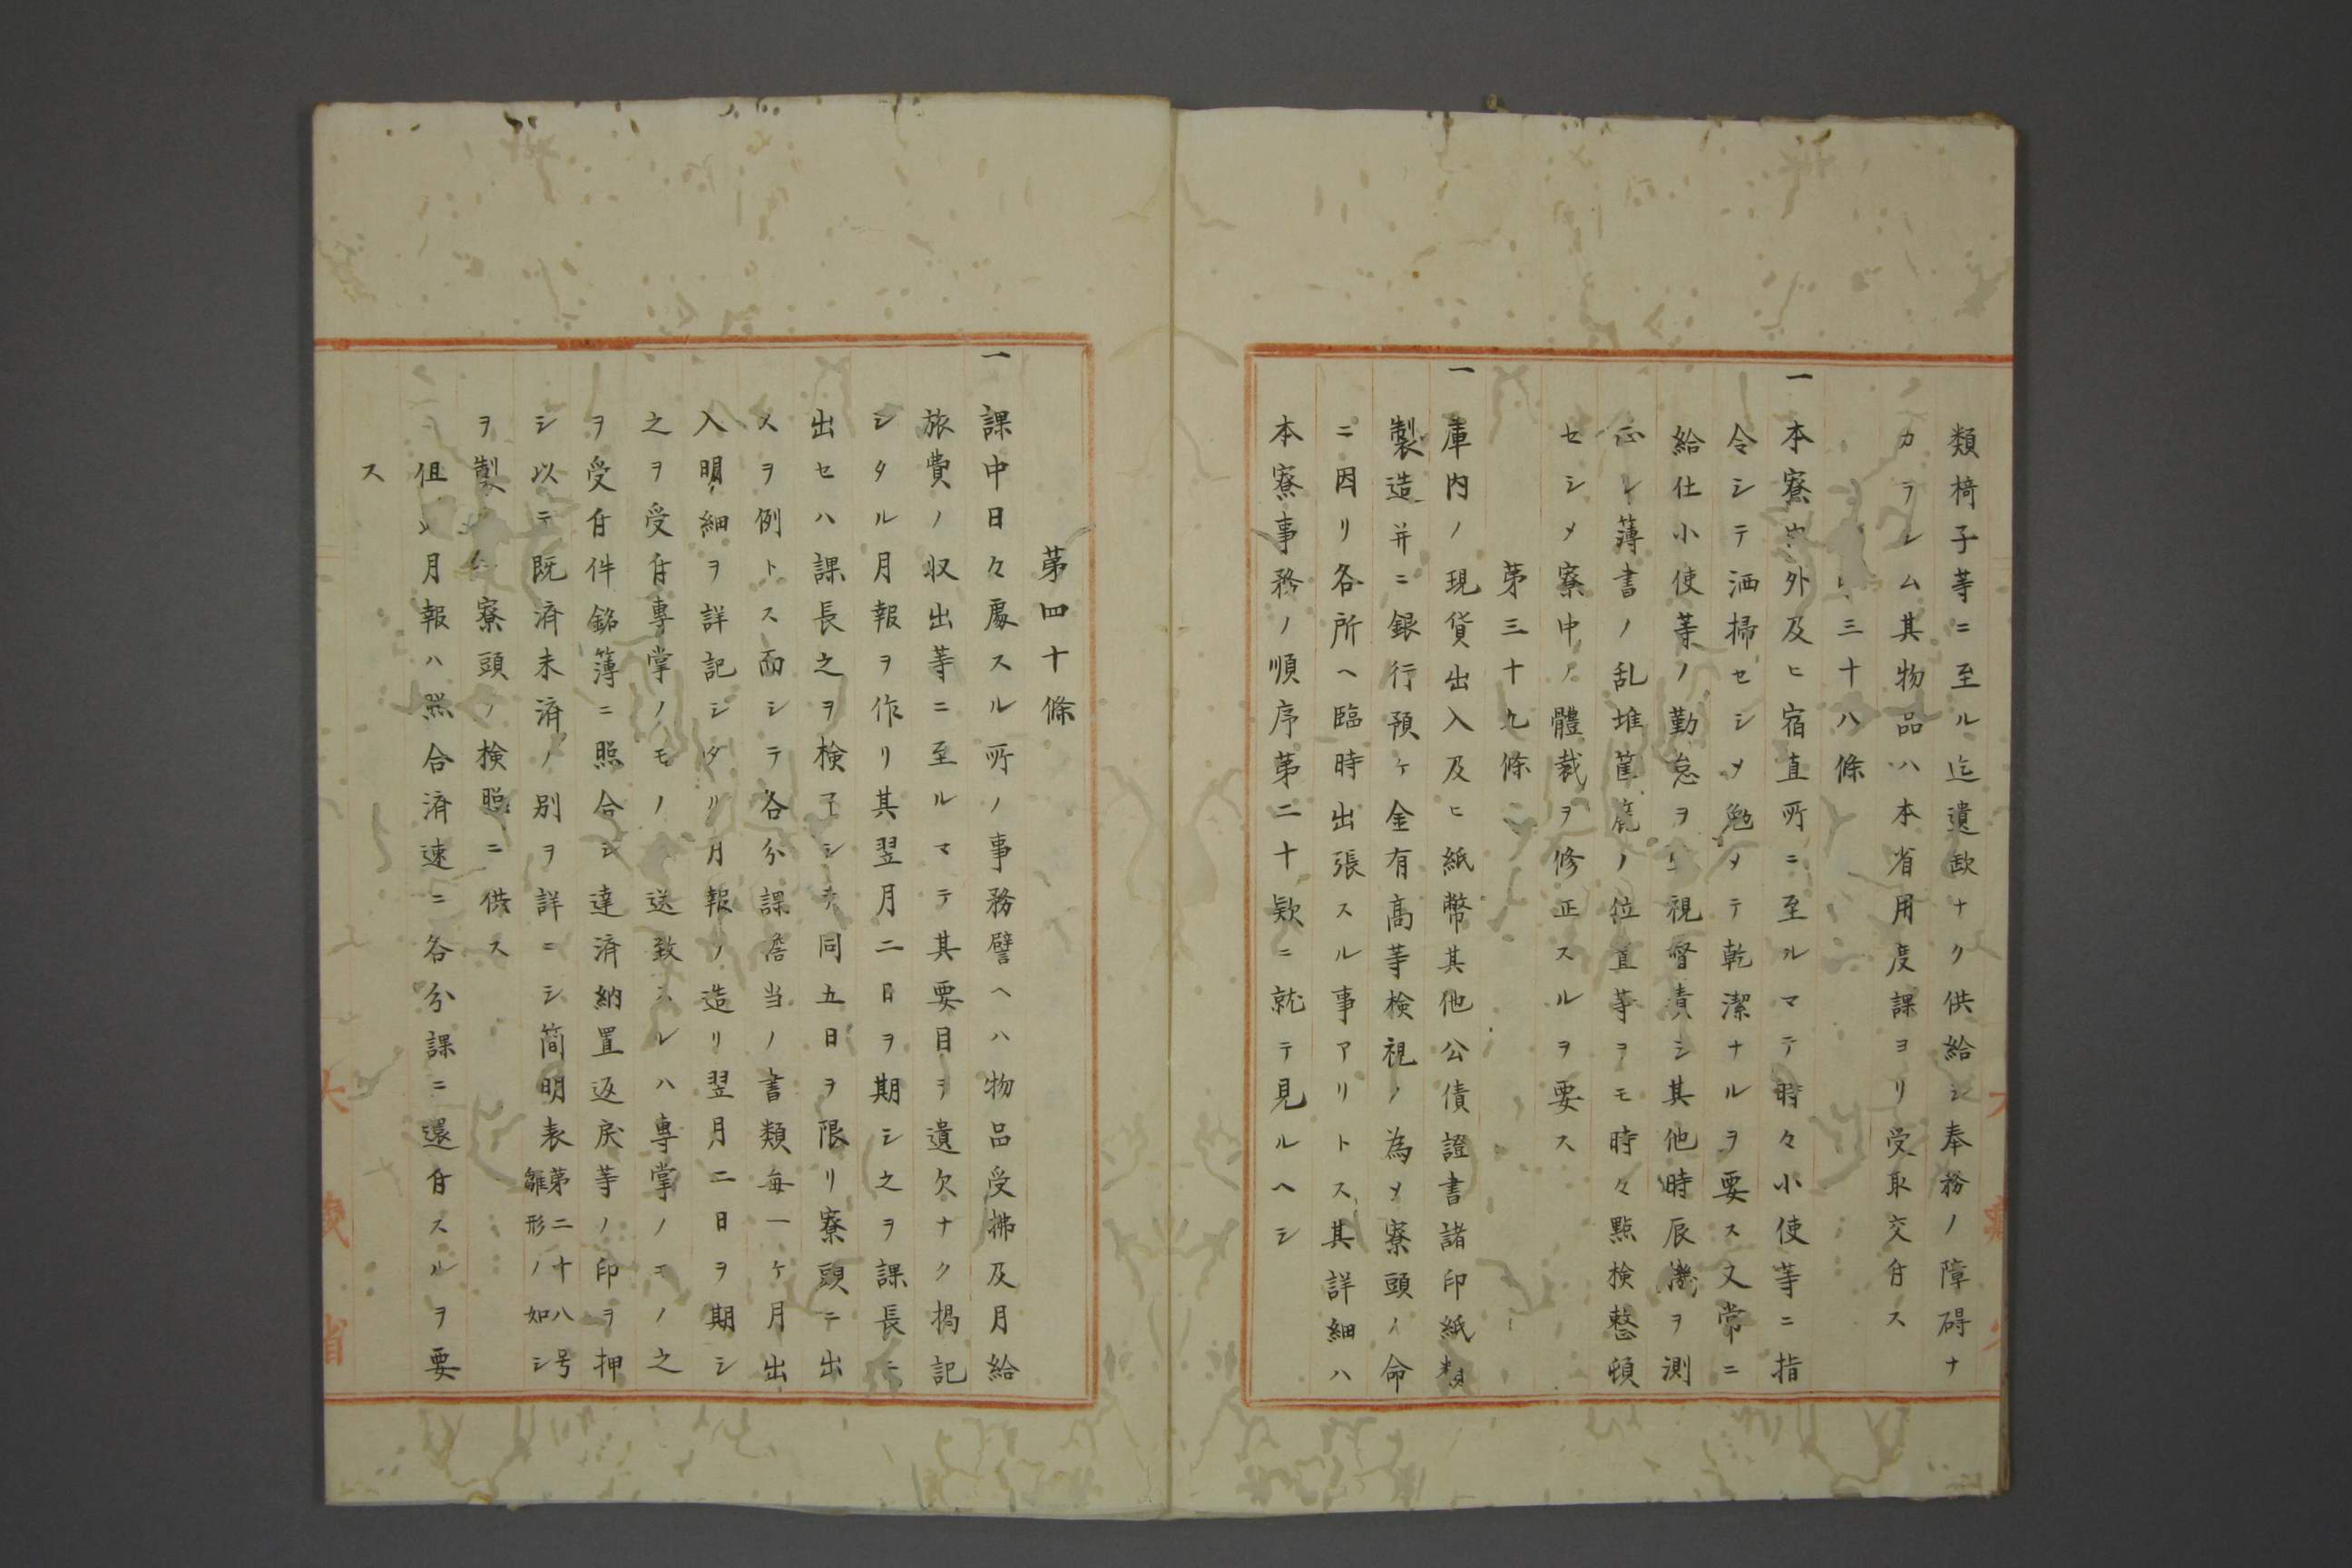 類椅子等ニ至ル迄遺缺ナク供給シ奉務ノ障碍ナ
カラシム其物品ハ本省用度課ヨリ受取交付ス
三十八條
一本寮内外及ヒ宿直所ニ至ルマテ時々小使等ニ指
令シテ洒掃セシメ勉メテ乾潔ナルヲ要ス又常ニ
給仕小使等ノ勤怠ヲ視督責シ其他時辰機ヲ測
正シ薄書ノ乱堆筐ノ位置等ヲモ時々點検整頓
セシメ寮中ノ體裁ヲ修正スルヲ要ス
第三十九條
一庫内ノ現貨出入及ヒ紙幣其他公債證書諸印紙類
製造并ニ銀行預ケ金有高等検視ノ為メ寮頭ノ命
ニ因リ各所ヘ臨時出張スル事アリトス其詳細ハ
本寮事務ノ順序第二十欵ニ就テ見ルヘシ
第四十條
一課中日々處スル所ノ事務譬ヘハ物品受拂及月給
旅費ノ収出等ニ至ルマテ其要目ヲ遺欠ナク掲記
シタル月報ヲ作リ其翌月二日ヲ期シ之ヲ課長ニ
出セハ課長之ヲ検了シテ同五日ヲ限リ寮頭ニ出
スヲ例トス而シテ各分課擔当ノ書類毎一ケ月出
入明細ヲ詳記シタリ月報ノ造リ翌月二日ヲ期シ
之ヲ受付專掌ノモノノ送致スレハ專掌ノモノ之
ヲ受付件銘簿ニ照合シ達済納置返戻等ノ印ヲ押
シ以テ既済未済ノ別ヲ詳ニシ簡明表第二十八号雛形ノ如シ
ヲ製シ寮頭ノ検照ニ供ス
但シ月報ハ照合済速ニ各分課ニ還付スルヲ要
ス
大蔵省